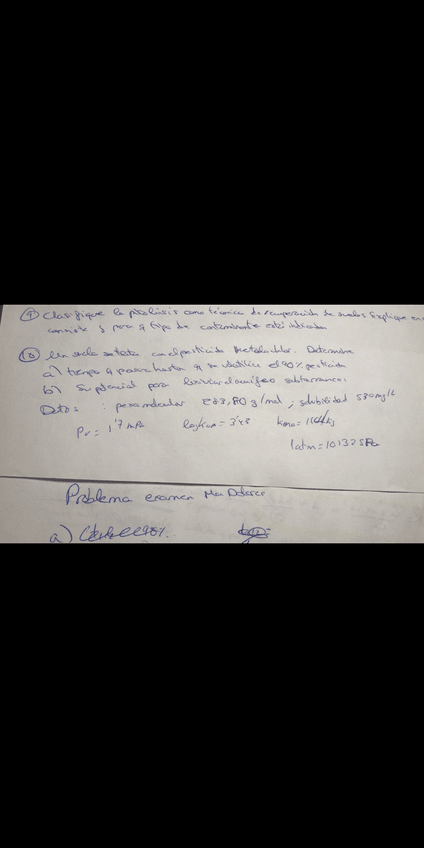 9) Clasifique la pirólisis como técnica de recuperación de suelos. Explique en
consiste y para q tipo de contaminante está indicada
10) Un suelo se trata con el pesticida Metolachlor. Determine
a) tiempo q pasará hasta q se volatilice el 90% pesticida
b) Su potencial para lixiviar al acuífero subterráneo.
Datos: peso molecular 283,80 g/mol; solubilidad 530 mg/L
Pv = 1'7 mPa
1 atm = 101325 Pa
Problema examen Mª Dolores
a)